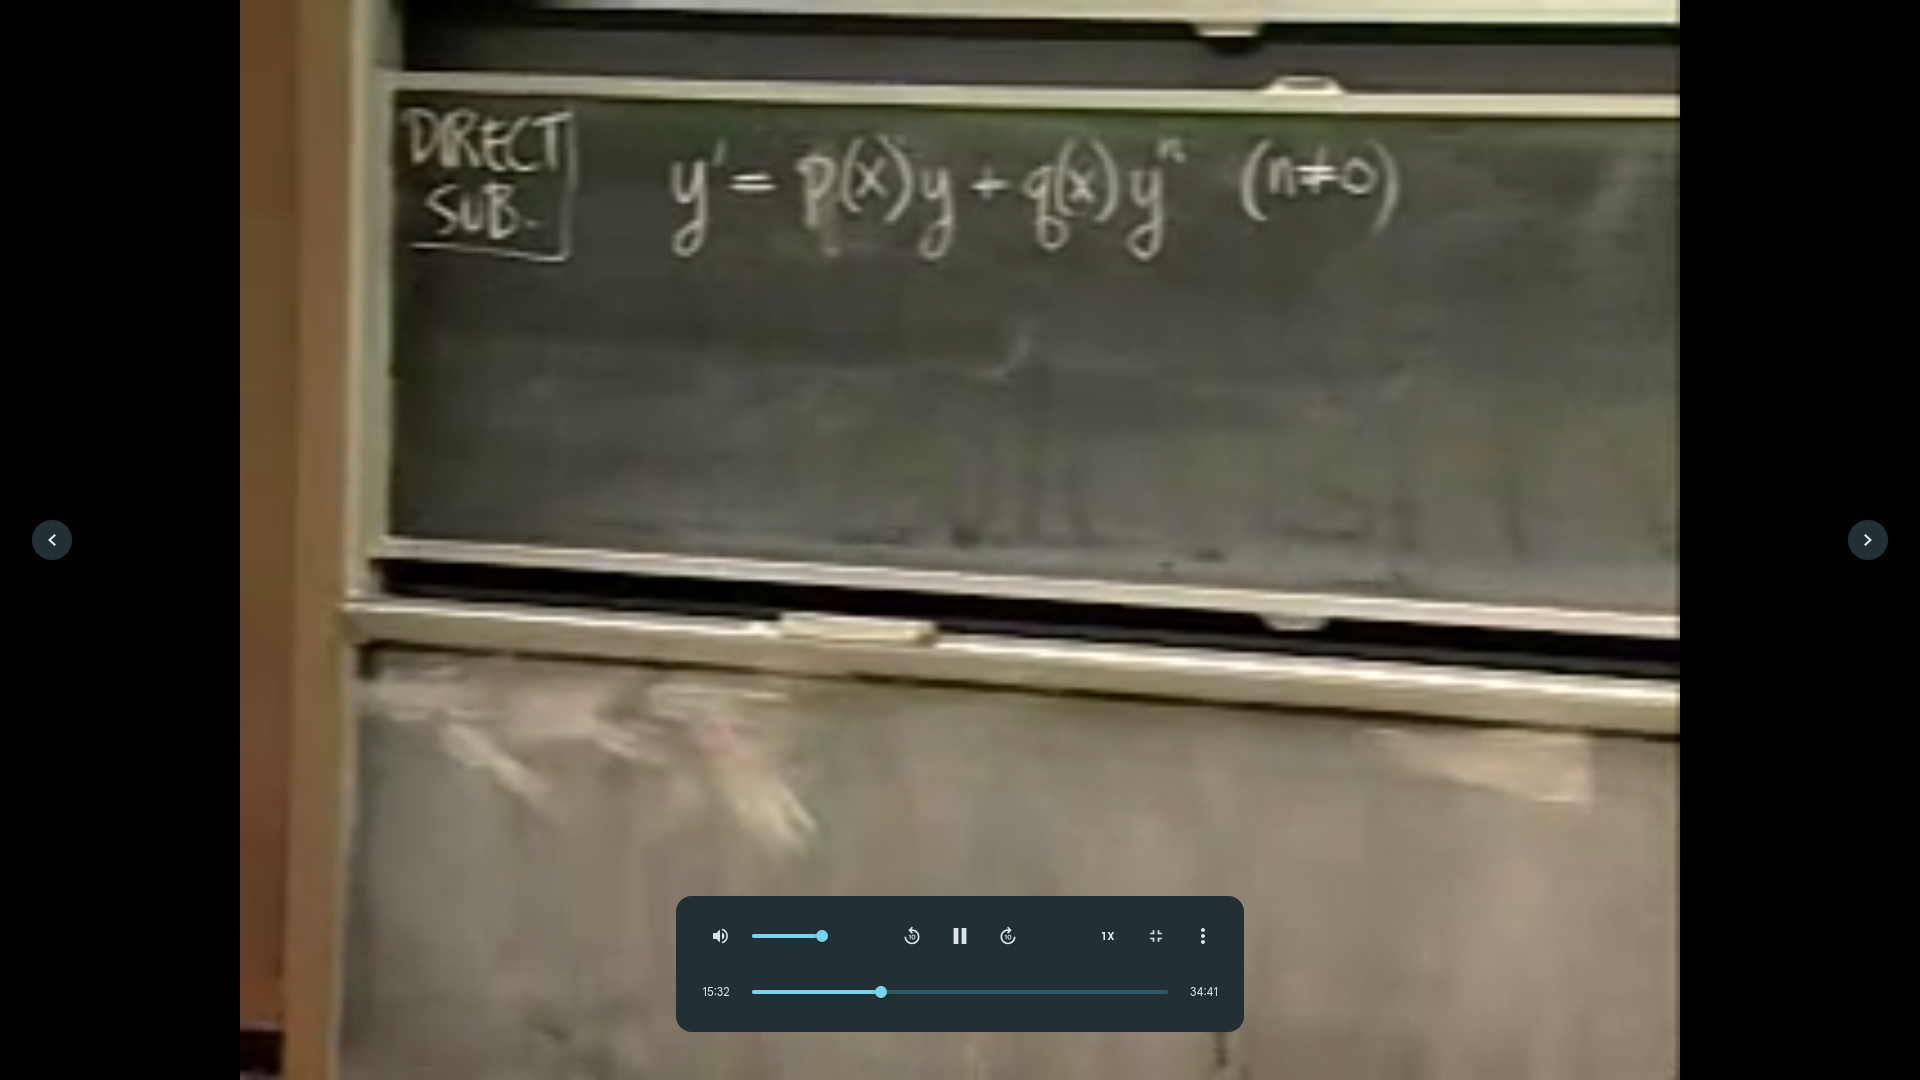 DIRECT
SUB.
y' = p(x)y + q(x)yⁿ (n≠0)
10
10
1X
15:32
34:41